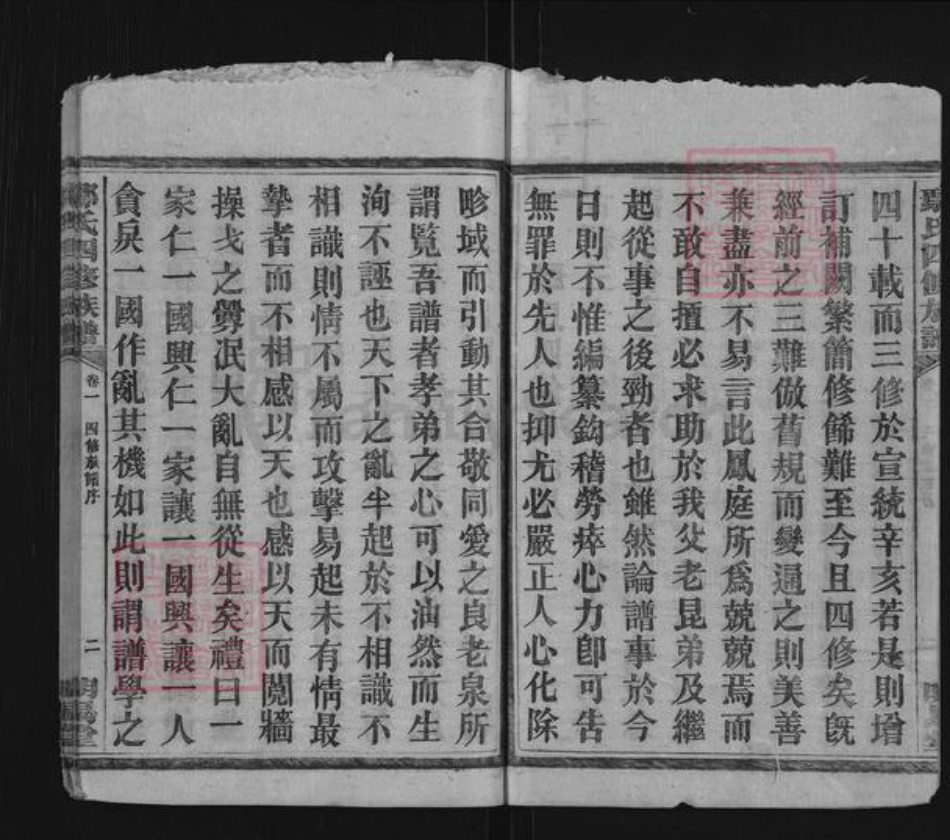 四十載而三修於宣統辛亥若是則增
訂補闕繁簡修餙難至今且四修矣旣
經前之三難倣舊規而變通之則美善
兼盡亦不易言此鳳庭所爲兢兢焉而
不敢自擅必求助於我父老昆弟及繼
起從事之後勁者也雖然論譜事於今
日則不惟編纂鈎稽勞瘁心力卽可告
無罪於先人也抑尤必嚴正人心化除
畛域而引動其合敬同愛之良老泉所
謂覽吾譜者孝弟之心可以油然而生
洵不誣也天下之亂半起於不相識不
相識則情不屬而攻擊易起未有情最
摯者而不相感以天也感以天而鬩牆
操戈之釁泯大亂自無從生矣禮曰一
家仁一國興仁一家讓一國興讓一人
貪戾一國作亂其機如此則謂譜學之
氏四修族譜
卷一
四修族譜序
二